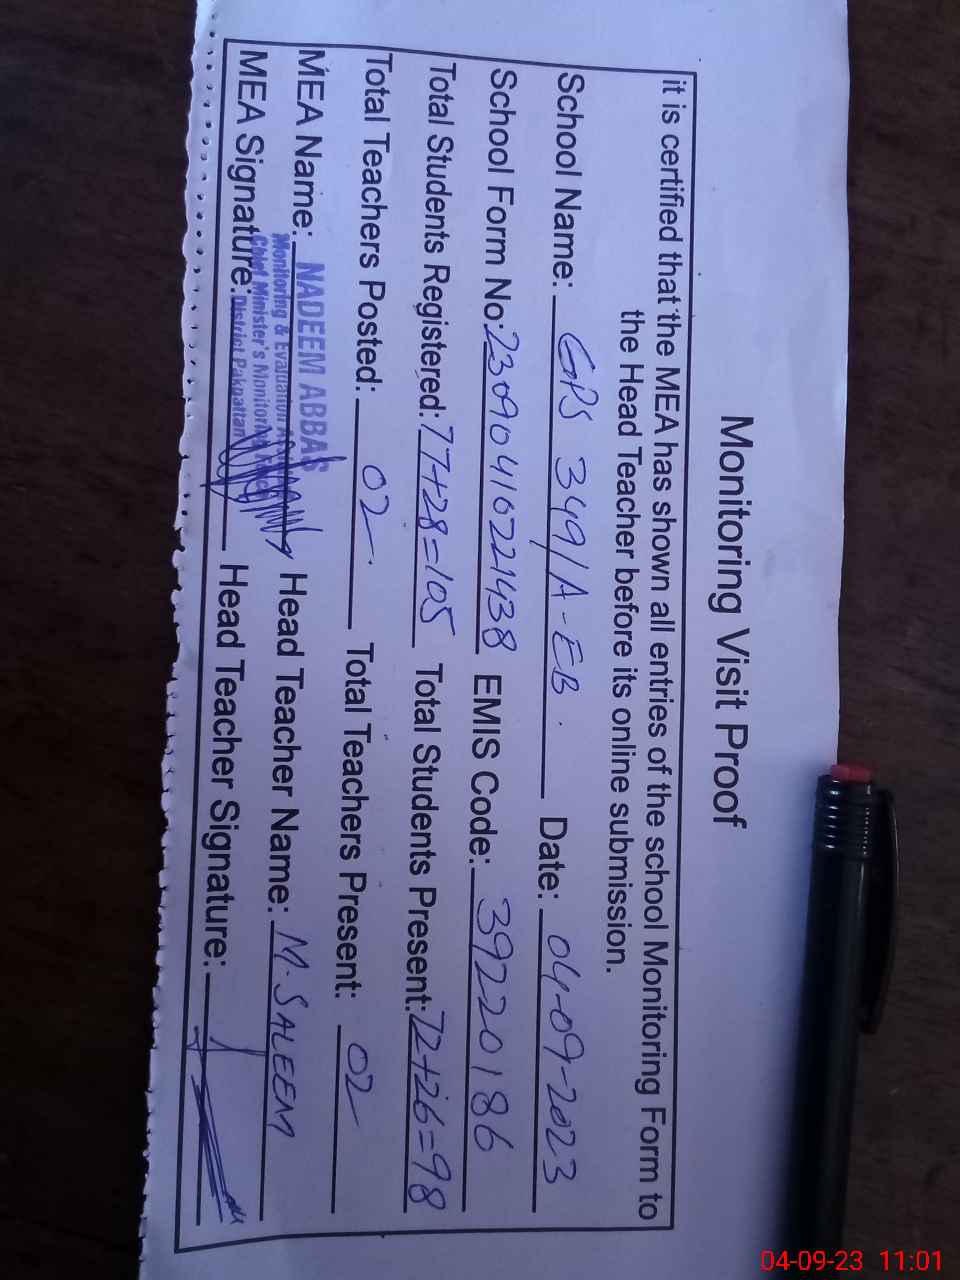 Monitoring Visit Proof
it is certified that the MEA has shown all entries of the school Monitoring Form to
the Head Teacher before its online submission.
School Name: GPS 349/A-EB. Date: 04-09-2023
School Form No: 23090416221438 EMIS Code: 39220186
Total Students Registered: 77+28=105 Total Students Present: 72+26=98
Total Teachers Posted: 02. Total Teachers Present: 02
MEA Name: NADEEM ABBAS Head Teacher Name: M. SALEEM
Monitoring & Evaluation
Chief Minister's Monitoring
District Pakpattan
MEA Signature: Head Teacher Signature:
04-09-23 11:01